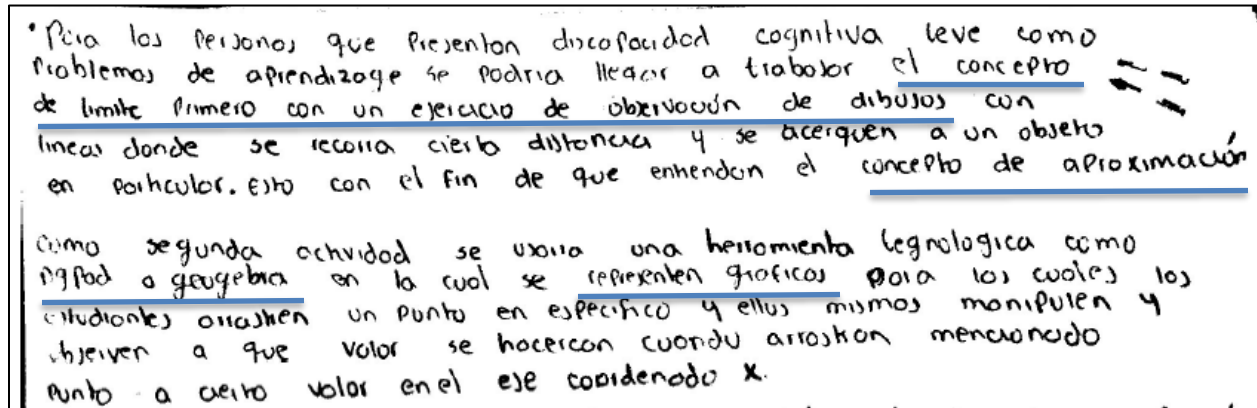 • Para las personas que presentan discapacidad cognitiva leve como
problemas de aprendizage se podria llegar a trabajar el concepto
de limite primero con un ejercicio de observación de dibujos con
lineas donde se recorra cierta distancia y se acerquen a un objeto
en particular. Esto con el fin de que entiendan el concepto de aproximación
como segunda actividad se usaria una herramienta tegnologica como
geogebra en la cual se representen graficos para los cuales los
estudiantes arrastren un punto en especifico y ellos mismos manipulen y
observen a que valor se hacercan cuando arrastran mencionado
punto a cierto valor en el eje coordenado x.